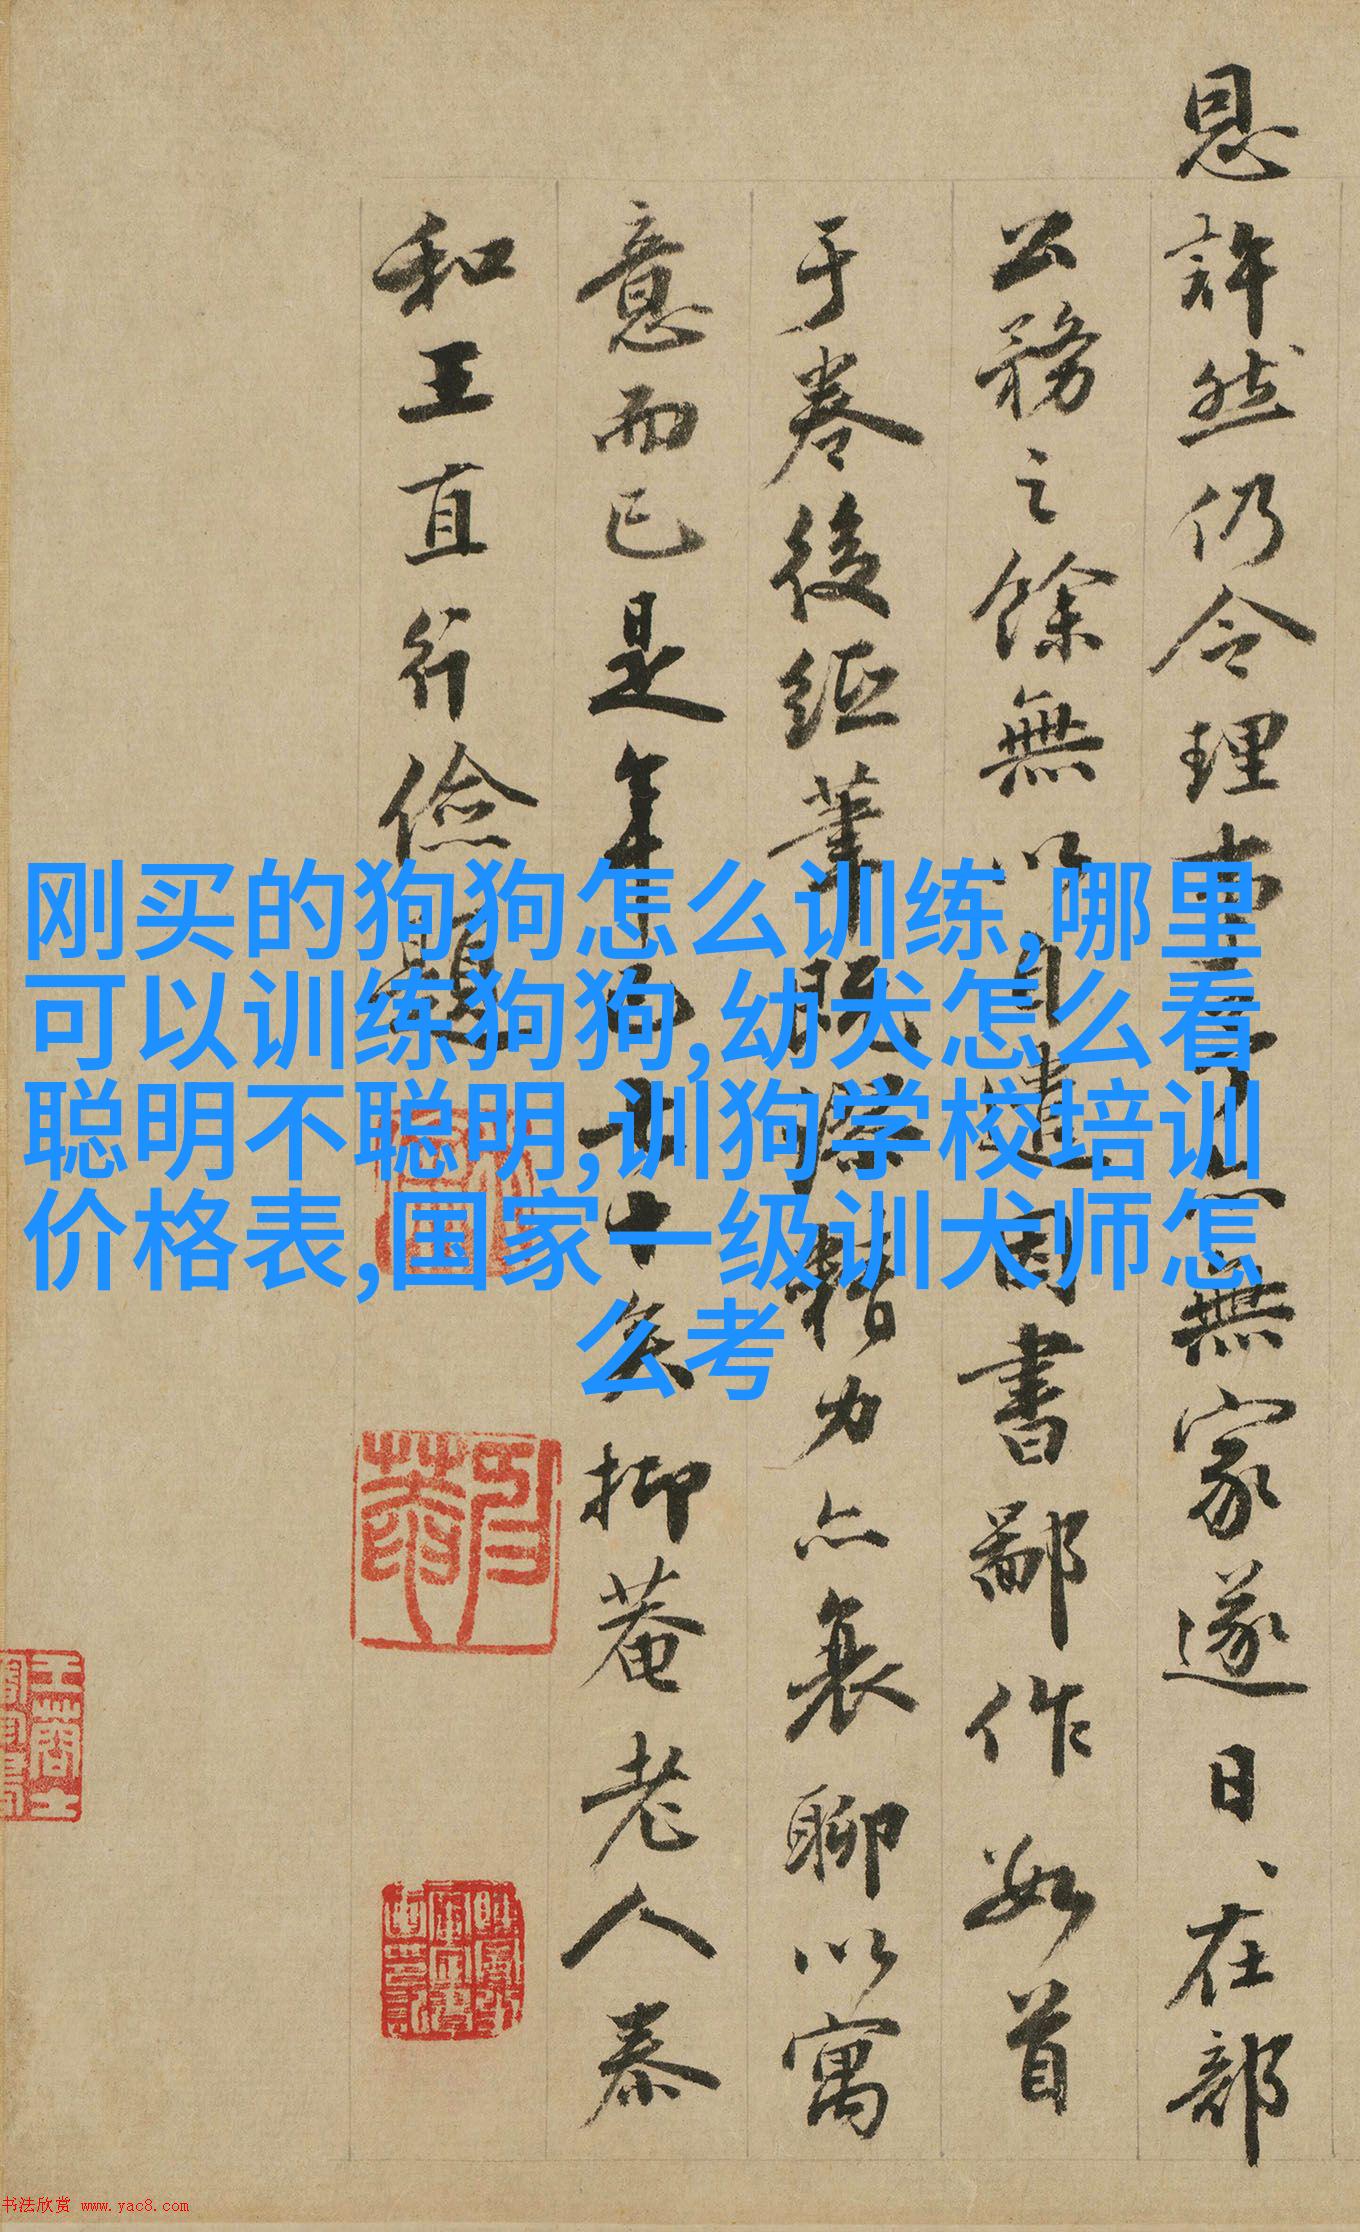 恩許然仍令理事亦無家遂日、在部
公務之餘無以自遣因書鄙作數首
于卷後紙筆既精力亦衰聊以寓
意而已是年七十矣抑菴老人泰
和王直行儉題
刚买的狗狗怎么训练,哪里
可以训练狗狗,幼犬怎么看
聪明不聪明,训狗学校培训
价格表,国家一级训犬师怎
么考
书法欣赏 www.yac8.com